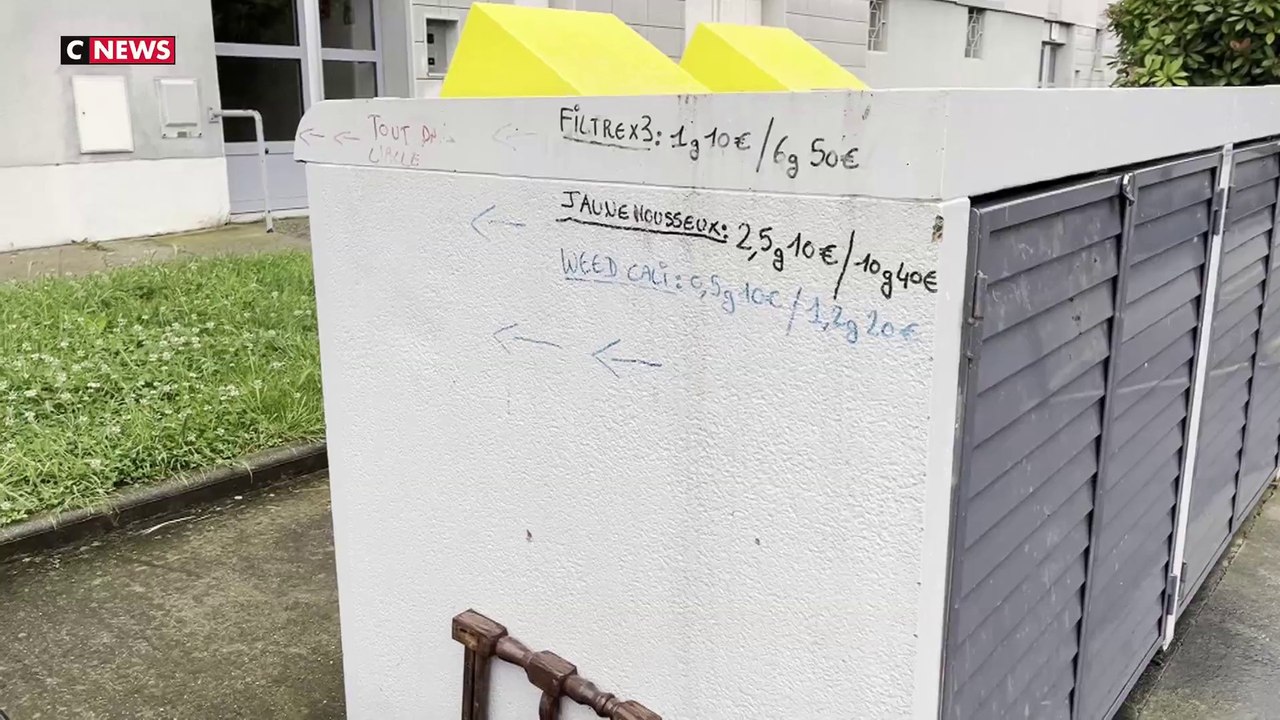 C NEWS
TOUT DR
FILTREX3: 1g 10€ / 6g 50€
JAUNE MOUSSEUX: 2,5g 10€ / 10g 40€
WEED CALI: 0,5g 10€ / 1,2g 20€